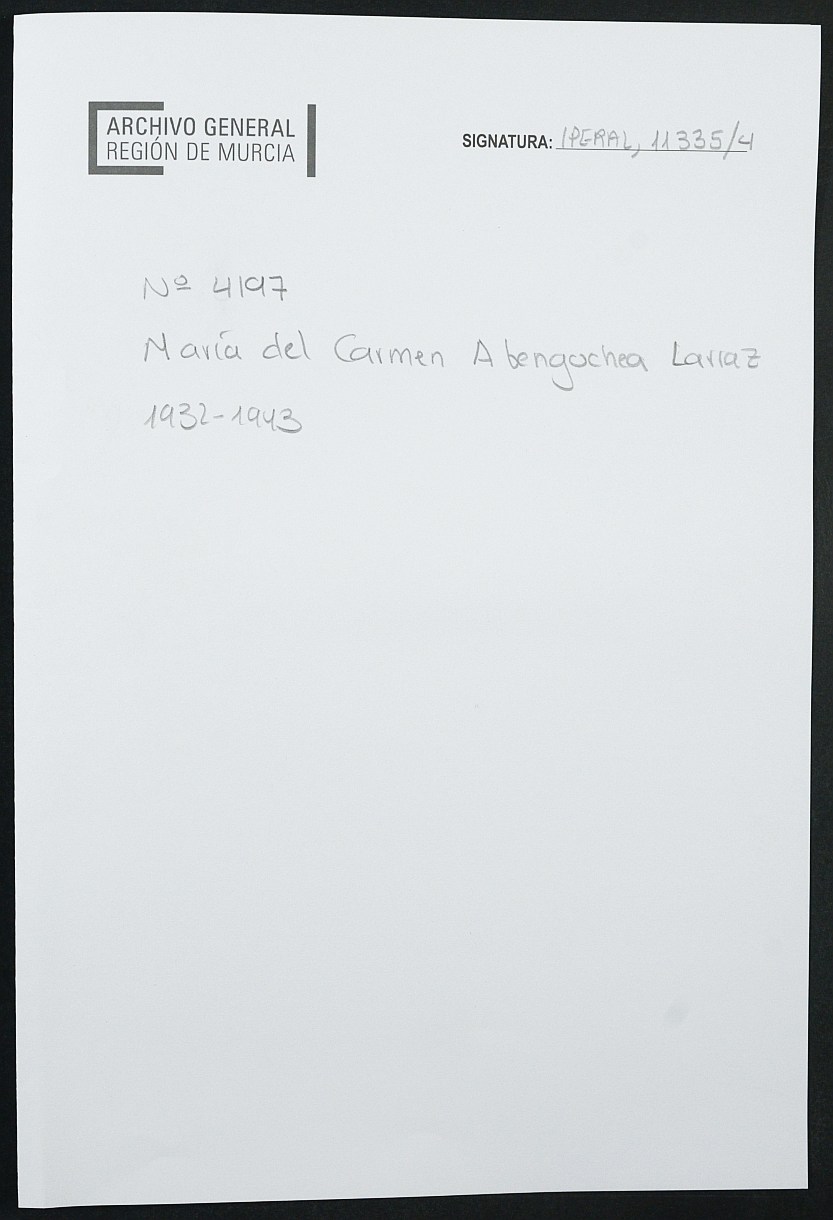 ARCHIVO GENERAL
REGIÓN DE MURCIA
SIGNATURA: IPERAL, 11335/4
Nº 4197
María del Carmen Abengochea Larraz
1932-1943